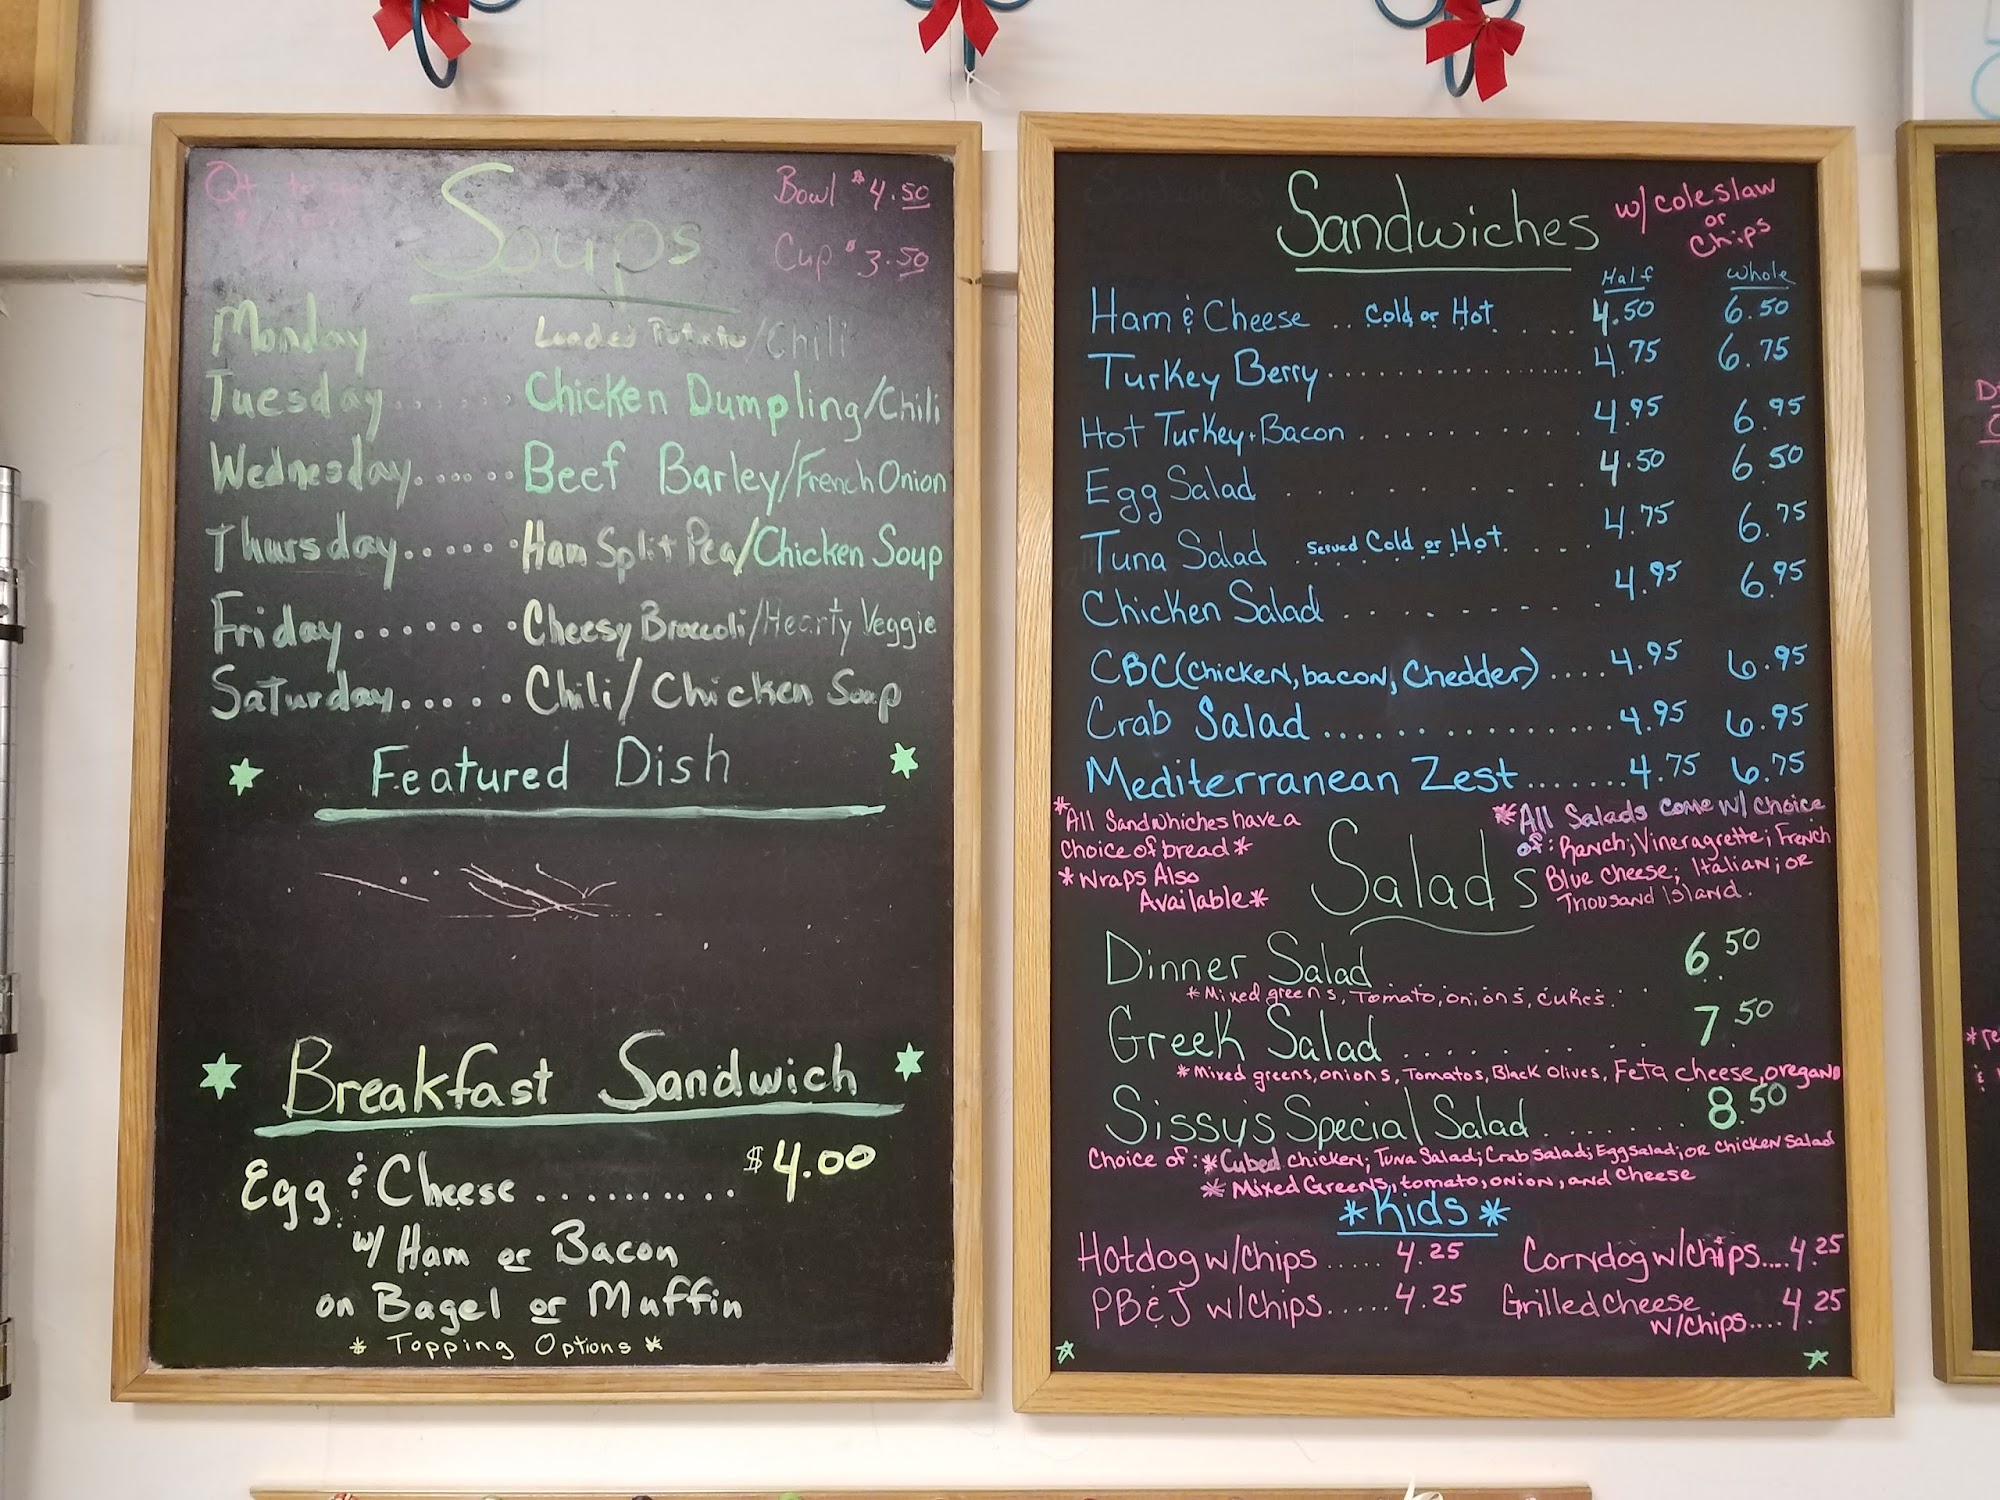 Qt to go
Soups
Bowl $4.50
Cup $3.50
Monday Loaded Potato/Chili
Tuesday....... Chicken Dumpling/Chili
Wednesday...... Beef Barley/French Onion
Thursday...... Ham Split Pea/Chicken Soup
Friday....... Cheesy Broccoli/Hearty Veggie
Saturday..... Chili/Chicken Soup
Featured Dish
Breakfast Sandwich
Egg & Cheese.......... $4.00
w/ Ham or Bacon
on Bagel or Muffin
* Topping Options *
Sandwiches
w/ coleslaw
or
Chips
Half Whole
Ham & Cheese .. Cold or Hot .... 4.50 6.50
Turkey Berry................ 4.75 6.75
Hot Turkey+Bacon.......... 4.95 6.95
Egg Salad ......... 4.50 6.50
Tuna Salad Served Cold or Hot .... 4.75 6.75
Chicken Salad ......... 4.95 6.95
CBC(chicken, bacon, Chedder).... 4.95 6.95
Crab Salad.............. 4.95 6.95
Mediterranean Zest....... 4.75 6.75
*All Sandwhiches have a
choice of bread*
*Wraps Also
Available*
Salads
*All Salads come w/ choice
of: Ranch; Vineragrette; French
Blue cheese; Italian; OR
Thousand Island.
Dinner Salad........ 6.50
*Mixed greens, Tomato, onions, cukes.
Greek Salad ........ 7.50
*Mixed greens, onions, Tomatos, Black olives, Feta cheese, oregano
Sissy's Special Salad ...... 8.50
Choice of: *Cubed chicken; Tuna Salad; Crab salad; Egg salad; OR chicken salad
* Mixed Greens, tomato, onion, and cheese
*Kids*
Hotdog w/chips ..... 4.25
Corndog w/chips.... 4.25
PB&J w/chips...... 4.25
Grilled cheese
w/chips.... 4.25